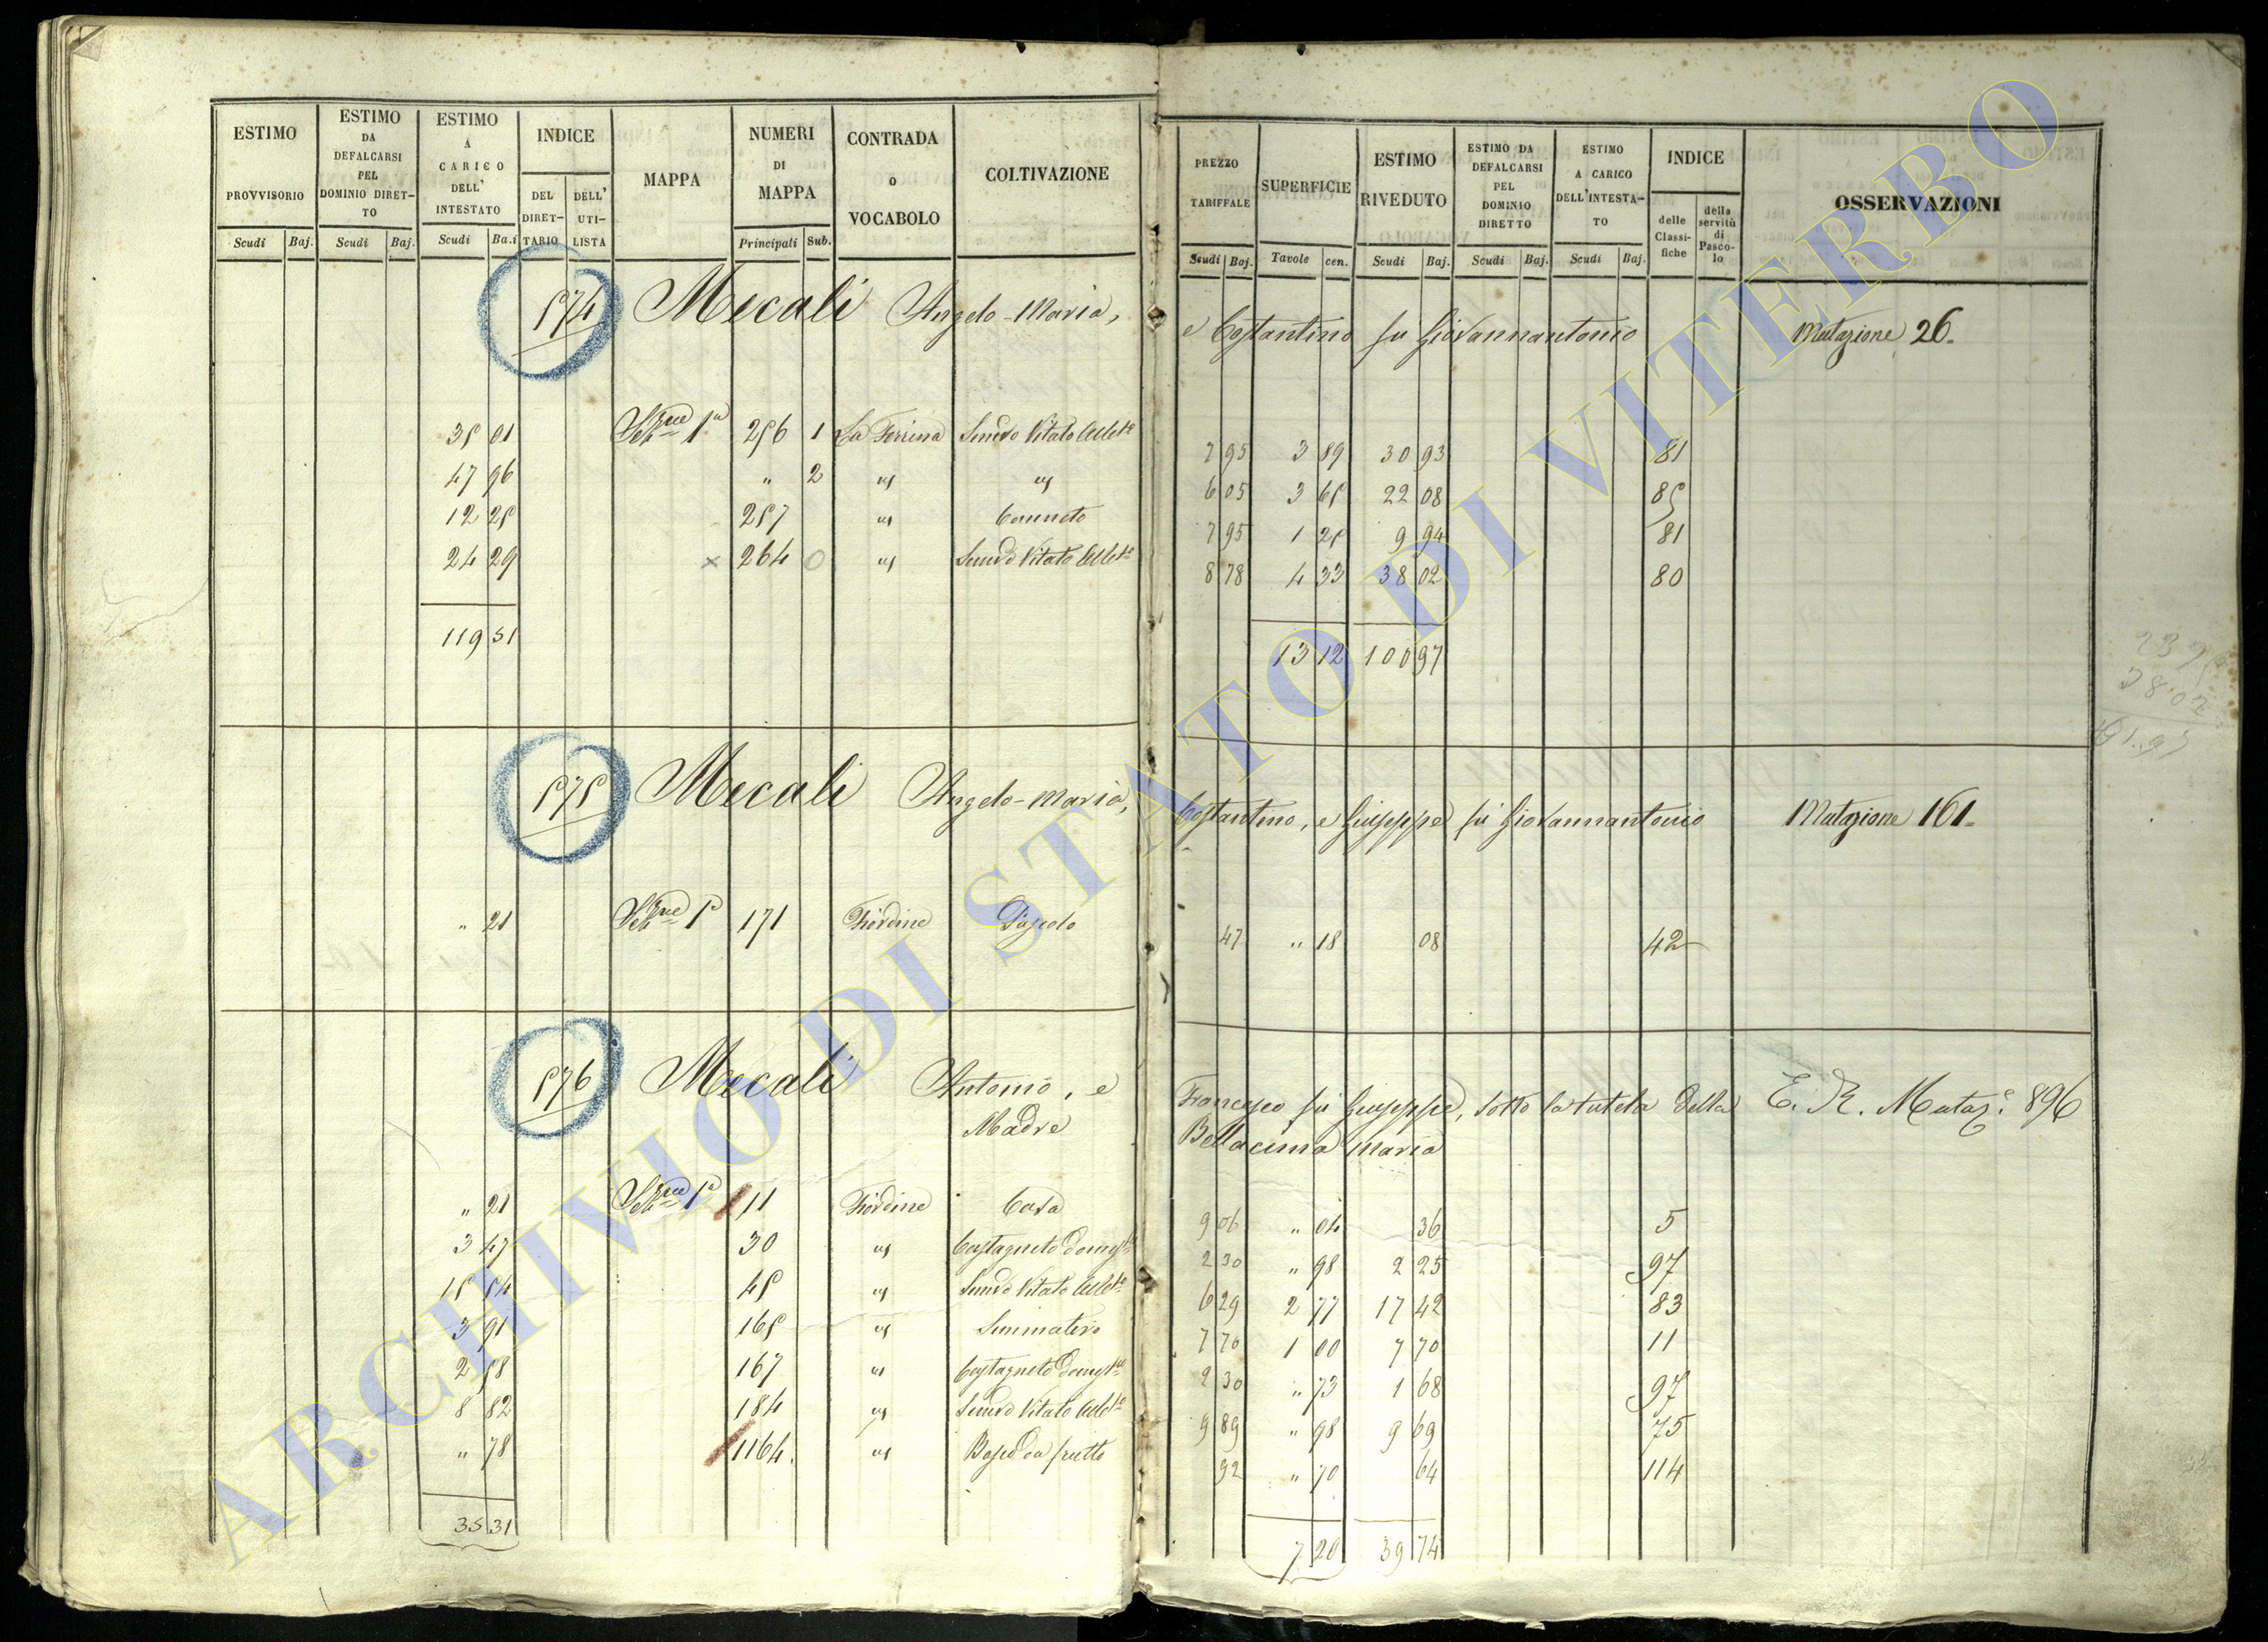 ESTIMO PROVVISORIO
ESTIMO DA DEFALCARSI PEL DOMINIO DIRET-TO
ESTIMO A CARICO DELL' INTESTATO
INDICE
DEL DIRET-TARIO
DELL' UTI-LISTA
MAPPA
NUMERI DI MAPPA
CONTRADA O VOCABOLO
COLTIVAZIONE
Scudi Baj. Scudi Baj. Scudi Ba.i Principali Sub.
PREZZO TARIFFALE
SUPERFICIE
ESTIMO RIVEDUTO
ESTIMO DA DEFALCARSI PEL DOMINIO DIRETTO
ESTIMO A CARICO DELL'INTESTA-TO
INDICE
delle Classi-fiche
della servitù di Pasco-lo
OSSERVAZIONI
Scudi Baj. Tavole cen. Scudi Baj. Scudi Baj. Scudi Baj.
574 Mecali Angelo-Maria, e Costantino fu Giovannantonio Mutazione 26.
35 01 Sez.ne 1a 256 1 La Ferriera Semvo Vitato 7 95 3 89 30 93 81
47 96 " 2 " " 6 05 3 65 22 08 85
12 25 257 " Canneto 7 95 1 25 9 94 81
24 29 x 264 0 " Semvo Vitato 8 78 4 33 38 02 80
119 51 13 12 100 97
23 9
38.02
61.95
575 Mecali Angelo-Maria, Costantino, e Giuseppe fu Giovannantonio Mutazione 161.
" 21 Sez.ne 1a 171 Fiordine Pascolo 47 " 18 08 42
576 Mecali Antonio, e Francesco fu Giuseppe, sotto la tutela della E. R. Mutaz.e 896
Madre Bellacima Maria
" 21 Sez.ne 1a 11 Fiordine Casa 9 06 " 04 36 5
3 47 30 " Castagneto Domest 2 30 " 98 2 25 97
15 54 45 " Semvo Vitato 6 29 2 77 17 42 83
3 91 165 " Seminativo 7 70 1 00 7 70 11
2 58 167 " Castagneto Domest 2 30 " 73 1 68 97
8 82 184 " Semvo Vitato 9 89 " 98 9 69 75
" 78 1164. " Bosco da frutto 92 " 70 64 114
35 31 7 20 39 74
ARCHIVIO DI STATO DI VITERBO